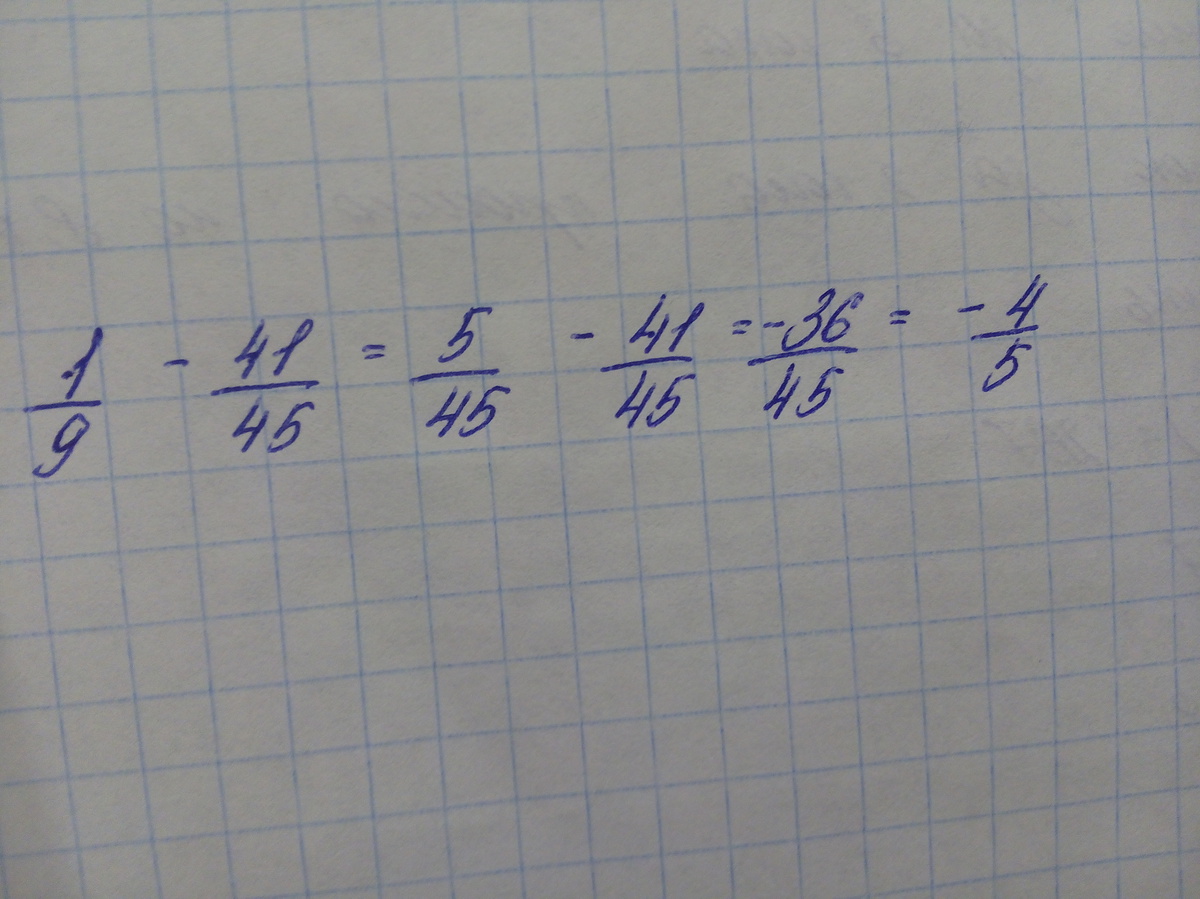 1/9 - 41/45 = 5/45 - 41/45 = -36/45 = -4/5